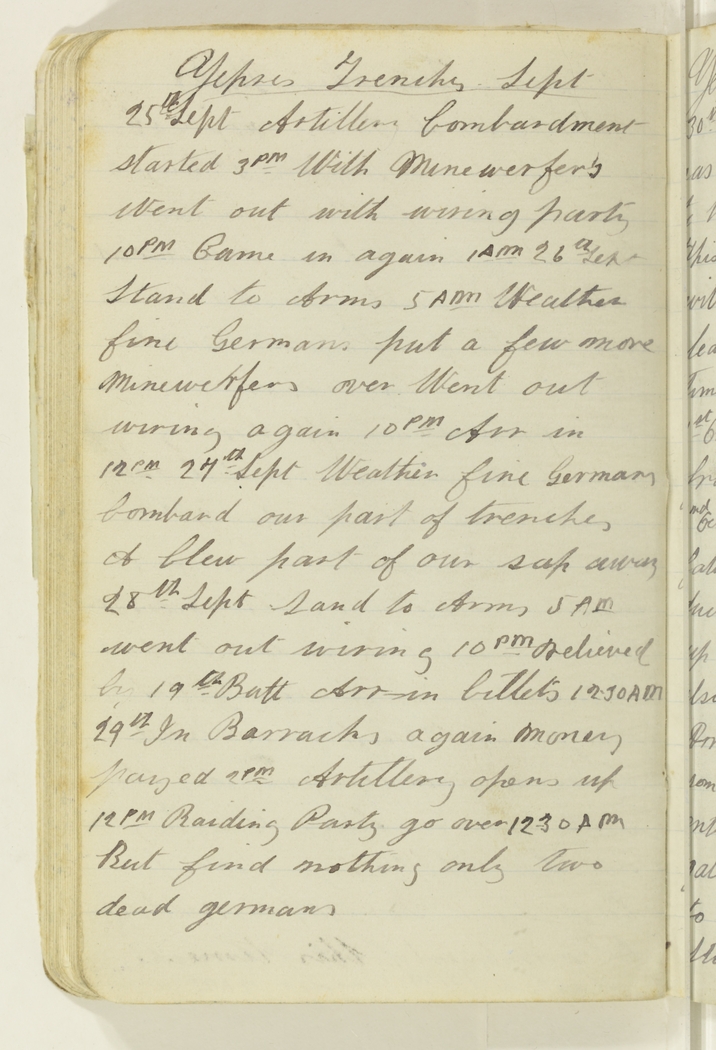 Yepres Trenches Sept
25th Sept Artillery bombardment
started 3PM With Minewerfer's
Went out with wiring party
10PM Came in again 1AM 26th Sept
Stand to Arms 5AM Weather
fine Germans put a few more
Minewerfers over Went out
wiring again 10PM Arr in
12PM 27th Sept Weather fine Germans
bombard our part of trenches
& blew part of our sap away
28th Sept Sand to Arms 5AM
went out wiring 10PM relieved
by 19th Batt Arr in billets 1230AM
29th In Barracks again Money
payed 2PM Artillery opens up
12PM Raiding Party go over 1230AM
But find nothing only two
dead germans